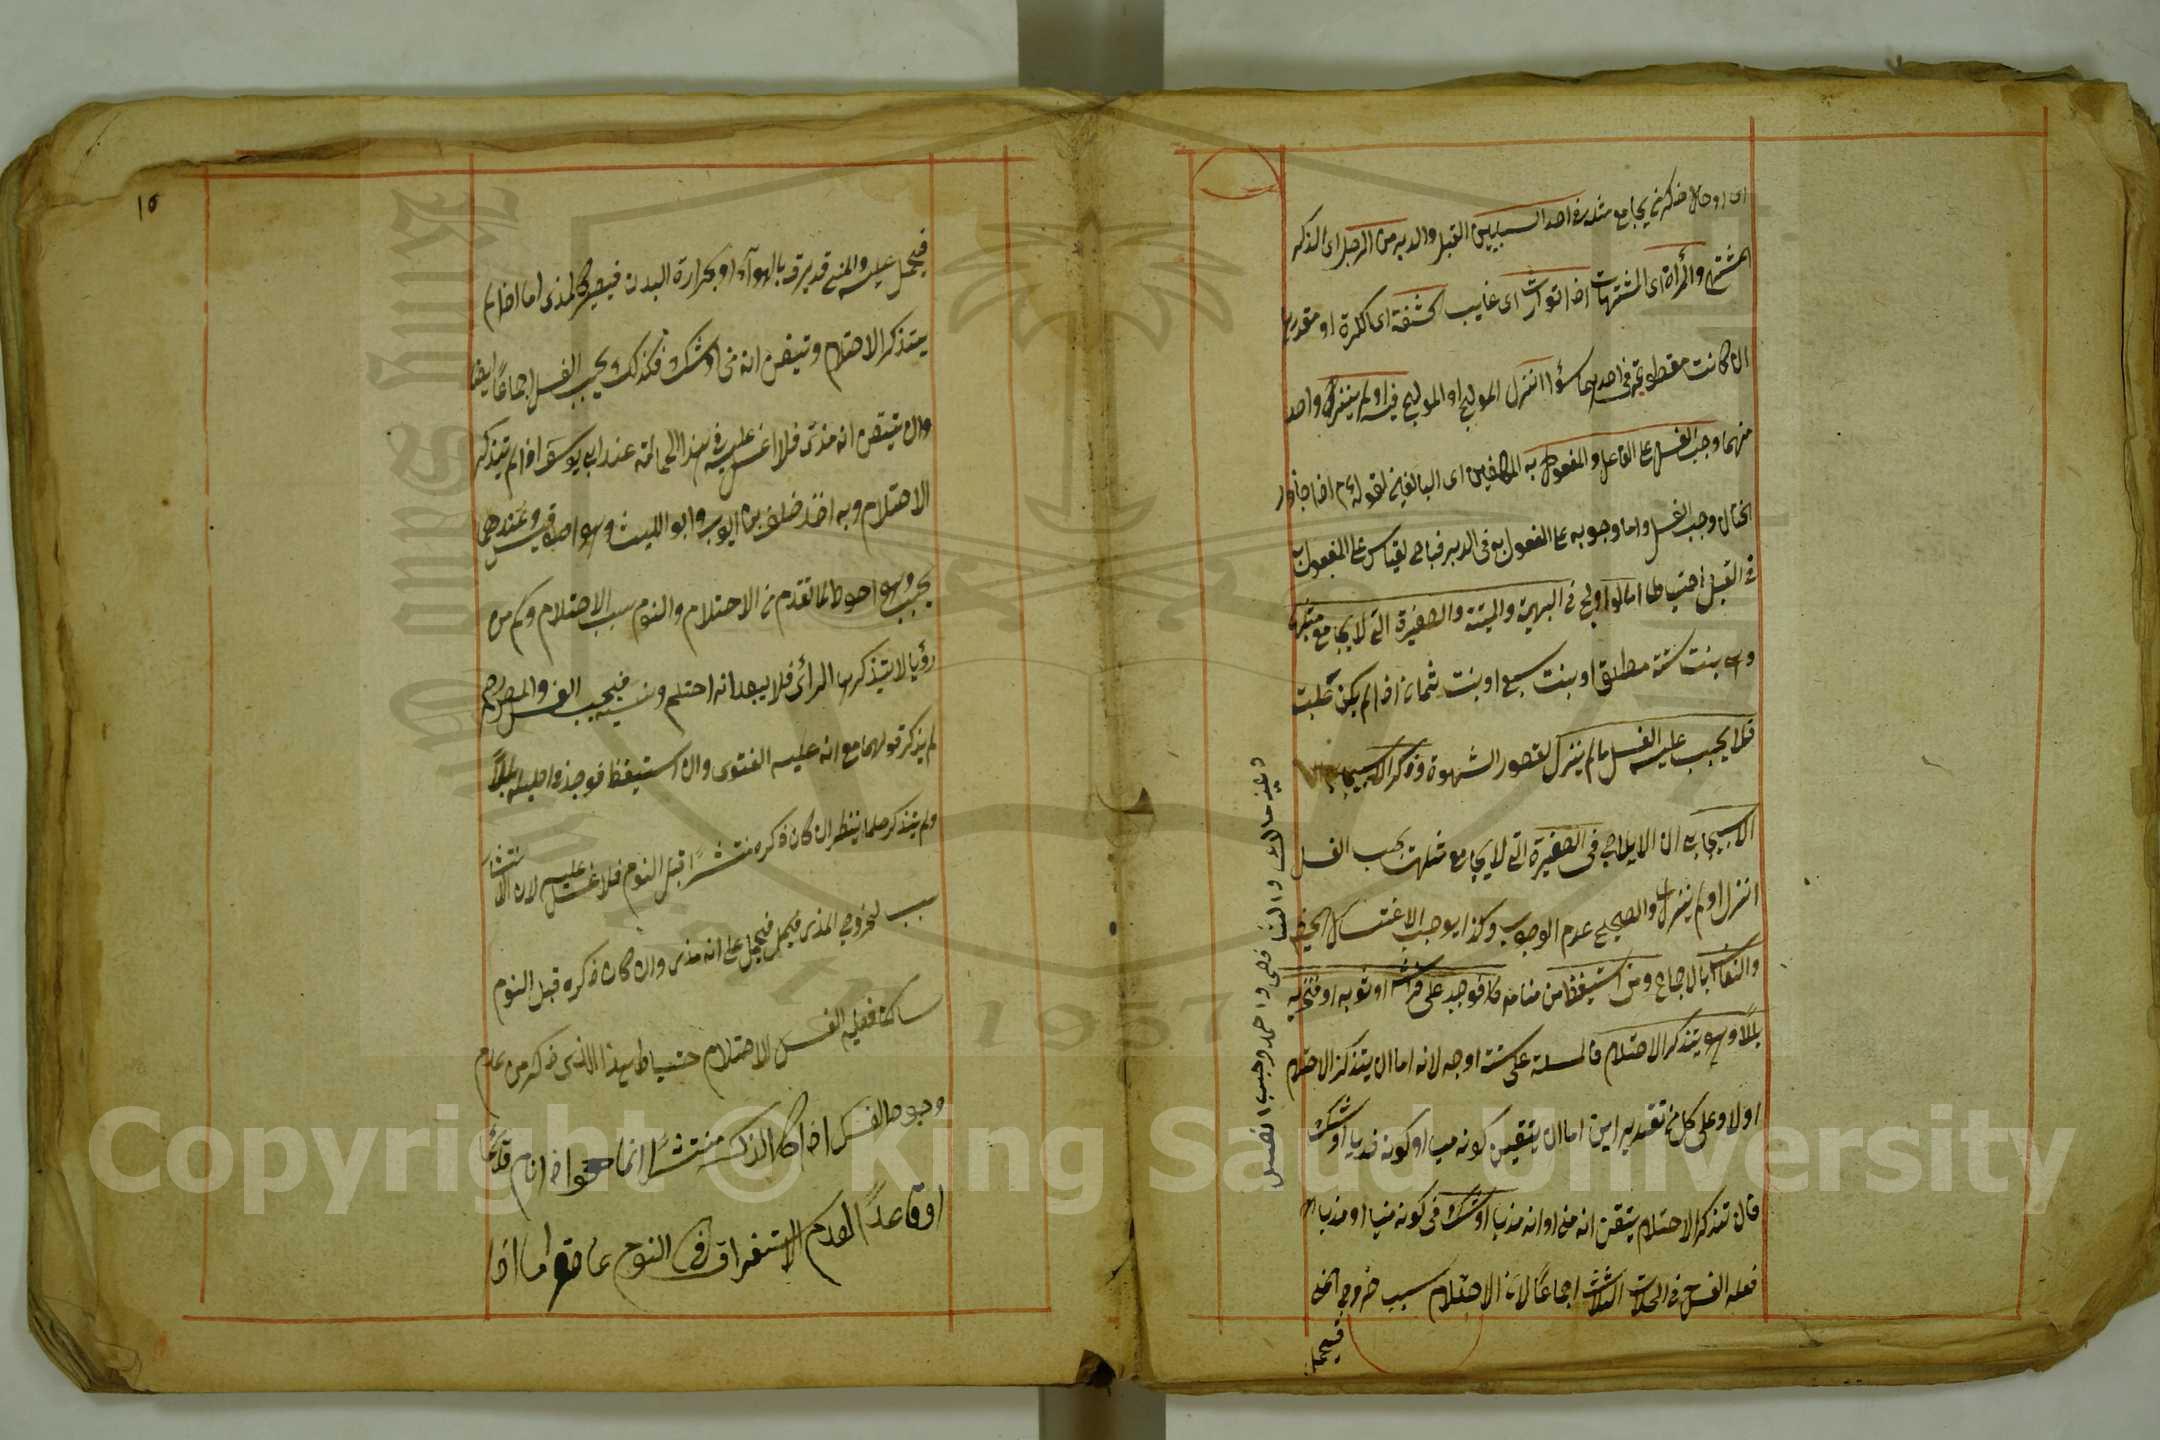 اى ادخال ذكر من يجامع مثله فى احد السبيلين القبل والدبر من الرجل اى الذكر
المشتهى والمرأة اى المشتهات اذا توارت اى غابت حشفة اى الكمرة او مقدرها
ان كانت مقطوعة فى احديهما سؤاء انزل المولج او المولج فيه او لم ينزل واحد
منهما وجب الغسل على الفاعل والمفعول به المكلفين اى البالغين لقوله ع م اذا جاوز
الختان وجب الغسل واما وجوبه على المفعول به فى الدبر فبالقياس على المفعول به
فى القبل احتياطا اما لو اولج فى البهيمة والميتة والصغيرة التى لا يجامع مثلها
وهى بنت ستة مطلق او بنت سبع او بنت ثمان اذا لم يكن عبلت
فلا يجب عليه الغسل ما لم ينزل لقصور الشهوة وذكر الاسبيجابى
الاسبيجابى ان الايلاج فى الصغيرة التى لا يجامع مثلها يجب الغسل
انزل او لم ينزل والصحيح عدم الوجوب وكذا يوجب الاغتسال الحيض
والنفاس بالاجماع ومن استيقظ من منامه فوجد على فراشه او ثوبه او فخذيه
بللا وهو يتذكر الاحتلام فالمسئلة على ستة اوجه لانه اما ان يتذكر الاحتلام
اولا وعلى كل من تقديرين اما ان يتيقن كونه منيا او كونه مذيا او شك
فان تذكر الاحتلام يتيقن انه منى او انه مذيا او شك فى كونه منيا او مذيا
فعليه الغسل فى الحلات الثلث اجماعًا لان الاحتلام سبب خروج المنى
فيحمل
١٥
فيحمل عليه والمنى قد يرق بالهواء او بحرارة البدن فيصير كالمذى اما اذا لم
يتذكر الاحتلام وتيقن انه منى او شك فكذلك يجب الغسل اجماعًا ايضا
وان تيقن انه مذى فلا غسل عليه فى هذا الحالة عند ابى يوسف اذا لم يتذكر
الاحتلام وبه اخذ خلف بن ايوب وابو الليث وهو اقيس وعندهما
يجب وهو احوط لما تقدم من الاحتلام والنوم سبب الاحتلام وكم من
رؤيا لا يتذكرها الرائى فلا يبعد انه احتلم ونسيه فيجب الغسل والمص رحمه
لم يذكر قولهما مع انه عليه الفتوى وان استيقظ فوجد فى احليله بللًا
ولم يتذكر حلما ينظر ان كان ذكره منتشرًا قبل النوم فلا غسل عليه لان الانتشار
سبب لخروج المذى فيحمل فيحمل على انه مذى وان كان ذكره قبل النوم
ساكنا فعليه الغسل الاحتلام حتياطا هذا الذى ذكر من عدم
وجوب الغسل اذا كان الذكر منتشرًا انما هو اذا نام قائمًا
او قاعدًا لعدم الاستغراق فى النوم عادة اما اذا
Copyright © King Saud University
King Saud University
1957